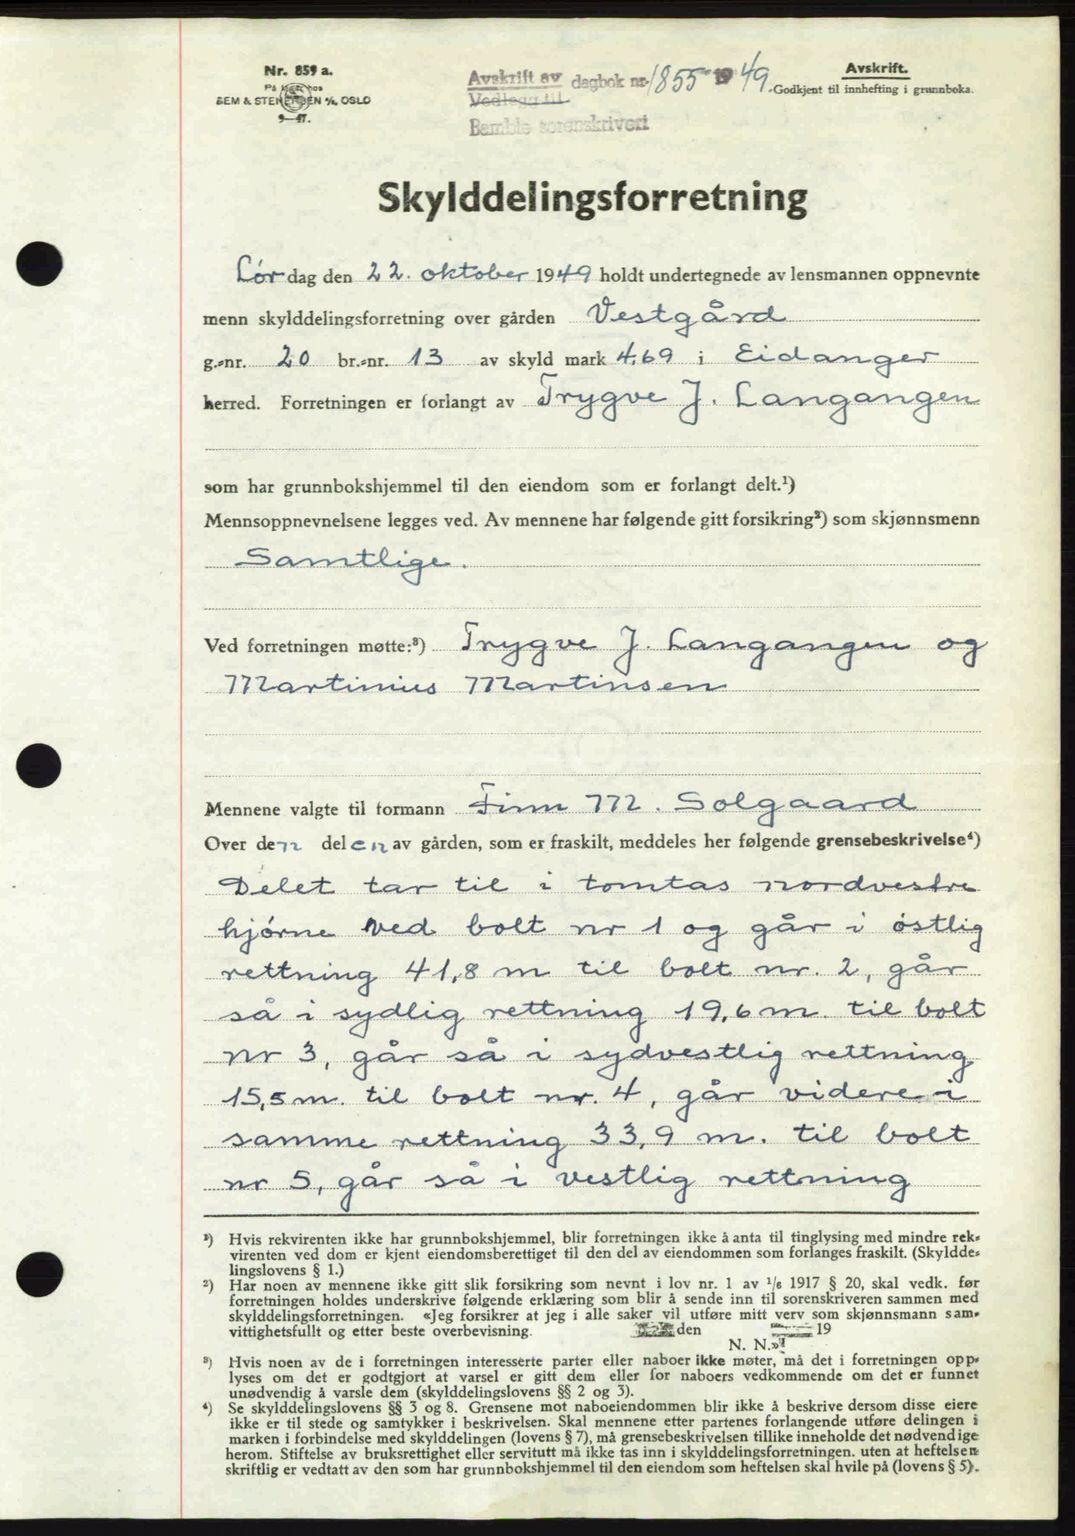 Nr. 859 a.
På lager hos
SEM & STENERSEN A/S, OSLO
9—47.
Avskrift av dagbok nr. 1855 1949
Vedlegg til
Bamble sorenskriveri
Avskrift.
Godkjent til innhefting i grunnboka.
Skylddelingsforretning
Lördag den 22. oktober 1949 holdt undertegnede av lensmannen oppnevnte
menn skylddelingsforretning over gården Vestgård
g.-nr. 20 br.-nr. 13 av skyld mark 4,69 i Eidanger
herred. Forretningen er forlangt av Trygve J. Langangen
som har grunnbokshjemmel til den eiendom som er forlangt delt.¹)
Mennsoppnevnelsene legges ved. Av mennene har følgende gitt forsikring²) som skjønnsmenn
Samtlige.
Ved forretningen møtte:³) Trygve J. Langangen og
Martinius Martinsen
Mennene valgte til formann Finn M. Solgaard
Over den delen av gården, som er fraskilt, meddeles her følgende grensebeskrivelse⁴)
Delet tar til i tomtas nordvestre
hjörne ved bolt nr 1 og går i östlig
rettning 41,8 m til bolt nr. 2, går
så i sydlig rettning 19,6 m. til bolt
nr 3, går så i sydvestlig rettning
15,5 m. til bolt nr. 4, går videre i
samme rettning 33,9 m. til bolt
nr 5, går så i vestlig rettning
¹) Hvis rekvirenten ikke har grunnbokshjemmel, blir forretningen ikke å anta til tinglysing med mindre rek-
virenten ved dom er kjent eiendomsberettiget til den del av eiendommen som forlanges fraskilt. (Skyldde-
lingslovens § 1.)
²) Har noen av mennene ikke gitt slik forsikring som nevnt i lov nr. 1 av ¹/₆ 1917 § 20, skal vedk. før
forretningen holdes underskrive følgende erklæring som blir å sende inn til sorenskriveren sammen med
skylddelingsforretningen. «Jeg forsikrer at jeg i alle saker vil utføre mitt verv som skjønnsmann sam-
vittighetsfullt og etter beste overbevisning. den 19
N. N.»
³) Hvis noen av de i forretningen interesserte parter eller naboer ikke møter, må det i forretningen opp-
lyses om det er godtgjort at varsel er gitt dem eller for naboers vedkommende om det er funnet
unødvendig å varsle dem (skylddelingslovens §§ 2 og 3).
⁴) Se skylddelingslovens §§ 3 og 8. Grensene mot naboeiendommen blir ikke å beskrive dersom disse eiere
ikke er til stede og samtykker i beskrivelsen. Skal mennene etter partenes forlangende utføre delingen i
marken i forbindelse med skylddelingen (lovens § 7), må grensebeskrivelsen tillike inneholde det nødvendige
herom. Stiftelse av bruksrettighet eller servitutt må ikke tas inn i skylddelingsforretningen. uten at heftelsen
skriftlig er vedtatt av den som har grunnbokshjemmel til den eiendom som heftelsen skal hvile på (lovens § 5).